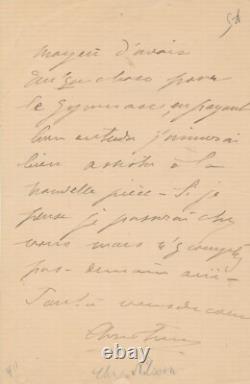 moyen d'avoir
quelque chose pour
le gymnase, en payant
bien entendu j'aimerai
bien assister à la
nouvelle pièce - Si je
peux je passerai chez
vous mais n'y comptez
pas - demain
Tout à vous de cœur